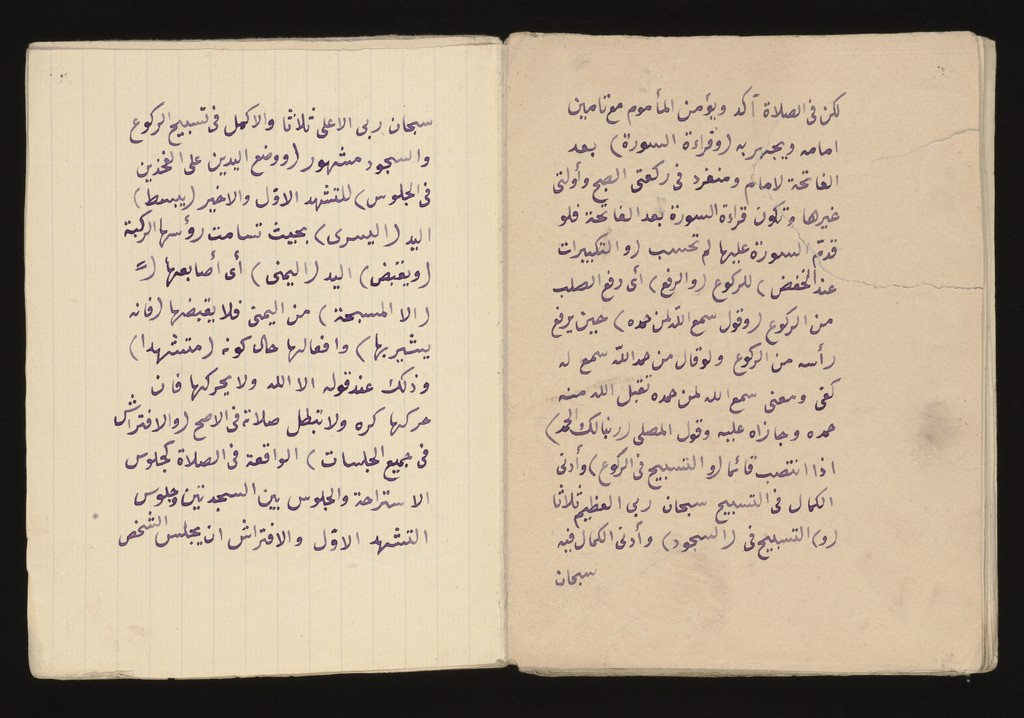 لكن فى الصلاة آكد ويؤمن المأموم مع تامين
امامه ويجهر به (وقراءة السورة) بعد
الفاتحة لامام ومنفرد فى ركعتى الصبح وأولتى
غيرها وتكون قراءة السورة بعد الفاتحة فلو
قدم السورة عليها لم تحسب (والتكبيرات
عند الخفض) للركوع (والرفع) أى رفع الصلب
من الركوع (وقول سمع الله لمن حمده) حين يرفع
رأسه من الركوع ولو قال من حمد الله سمع له
كفى ومعنى سمع الله لمن حمده تقبل الله منه
حمده وجازاه عليه وقول المصلى (ربنا لك الحمد)
اذا انتصب قائما (والتسبيح فى الركوع) وأدنى
الكمال فى التسبيح سبحان ربى العظيم ثلاثا
(و) التسبيح فى (السجود) وأدنى الكمال فيه
سبحان
سبحان ربى الاعلى ثلاثا والاكمل فى تسبيح الركوع
والسجود مشهور (ووضع اليدين على الفخذين
فى الجلوس) للتشهد الاوّل والاخير (يبسط)
اليد (اليسرى) بحيث تسامت رؤسها الركبة
(ويقبض) اليد (اليمنى) أى أصابعها (=
(الا المسبحة) من اليمنى فلا يقبضها (فانه
يشير بها) رافعالها حال كونه (متشهدا)
وذلك عند قوله الا الله ولا يحركها فان
حركها كره ولا تبطل صلاته فى الاصح (والافتراش
فى جميع الجلسات) الواقعة فى الصلاة كجلوس
الاستراحة والجلوس بين السجدتين وجلوس
التشهد الاوّل والافتراش ان يجلس الشخص